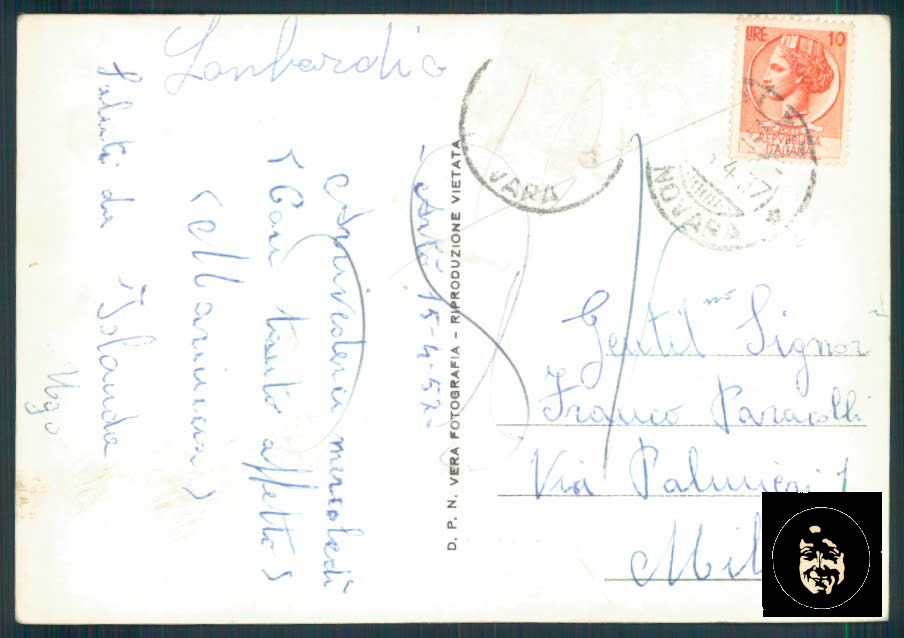 Lombardia
- Arta 15-4-57
Arrivederci mercoledì
(Con tanto affetto)
(Mariuccia)
Saluti da Iolanda
Ugo
D. P. N. VERA FOTOGRAFIA - RIPRODUZIONE VIETATA
VARA
LIRE 10
POSTE
REPVBBLICA
ITALIANA
4.57
NOVARA
Gentil mo Signor
Franco Paracolli
Via Palmieri 1
Mil